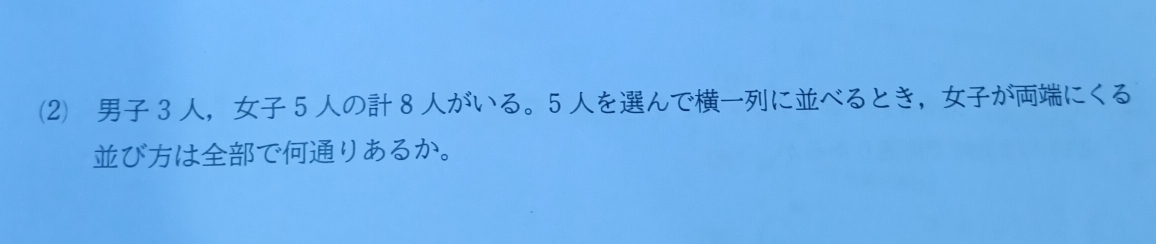 (2) 男子3人,女子5人の計8人がいる。5人を選んで横一列に並べるとき,女子が両端にくる
並び方は全部で何通りあるか。